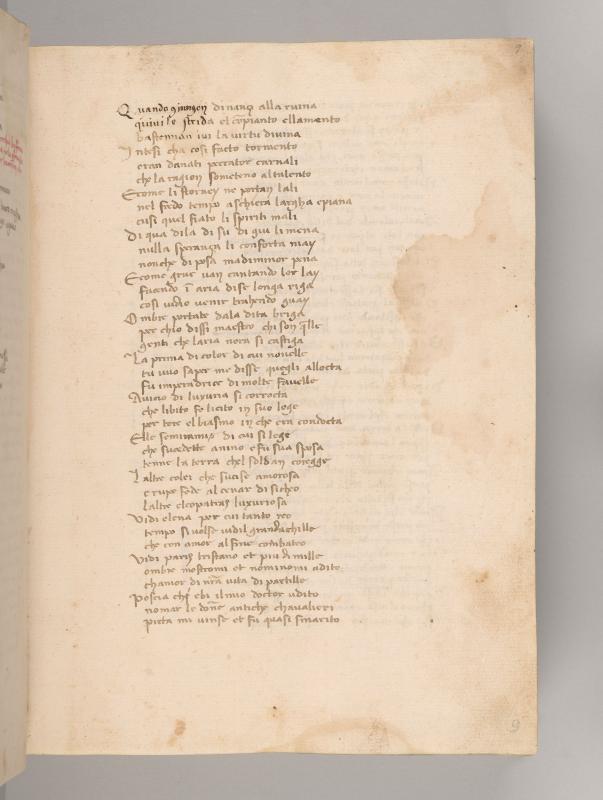 Quando giungon dinanzi alla ruina
quivi le strida el conpianto ellamento
bastemian ivi la virtu divina
Intesi cha cosi facto tormento
eran danati peccator carnali
che la ragion someteno altalento
Ecome li storney ne portan lali
nel fredo tempo aschiera largha epiana
cusi quel fiato li spiriti mali
Di qua dila di su di giu li mena
nulla speranza li conforta may
nonche di posa madiminor pena
Ecome grue van cantando lor lay
facendo ī aria dise longa riga
cosi vidio venir trahendo guay
Ombre portate dala dita briga
per chio dissi maestro chi son q̄lle
genti che laria nera si castiga
La prima di color di cui novelle
tu vuo saper me disse quegli allocta
fu imperadrice di molte favelle
Avicio di luxuria si corrocta
che libito fo licito in suo lege
per tore el biasmo in che era condocta
Elle semiramis di cui si lege
che sucedette anino e fu sua sposa
tenne la terra chel soldan coregge
Laltre colei che sucise amorosa
e rupe fede al cenar di sicheo
laltre cleopatras luxuriosa
Vidi elena per cui tanto reo
tempo si volse vidil grandachille
che con amor alfine conbateo
Vidi paris tristano et piu di mille
ombre mostromi et nominomi adito
chamor di nr̄a vita di partille
Poscia chi ebi ilmio doctor udito
nomar le don̄e antiche chavalieri
pieta mi vinse et fu quasi smarito
9